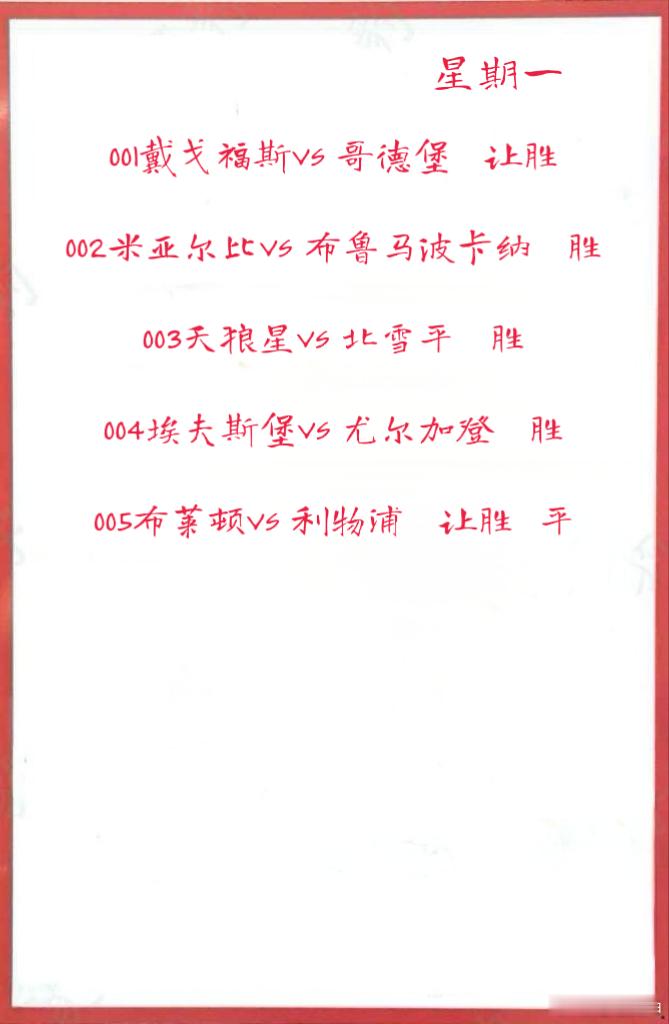 星期一
001戴戈福斯vs 哥德堡 让胜
002米亚尔比vs 布鲁马波卡纳 胜
003天狼星vs 北雪平 胜
004埃夫斯堡vs 尤尔加登 胜
005布莱顿vs 利物浦 让胜 平